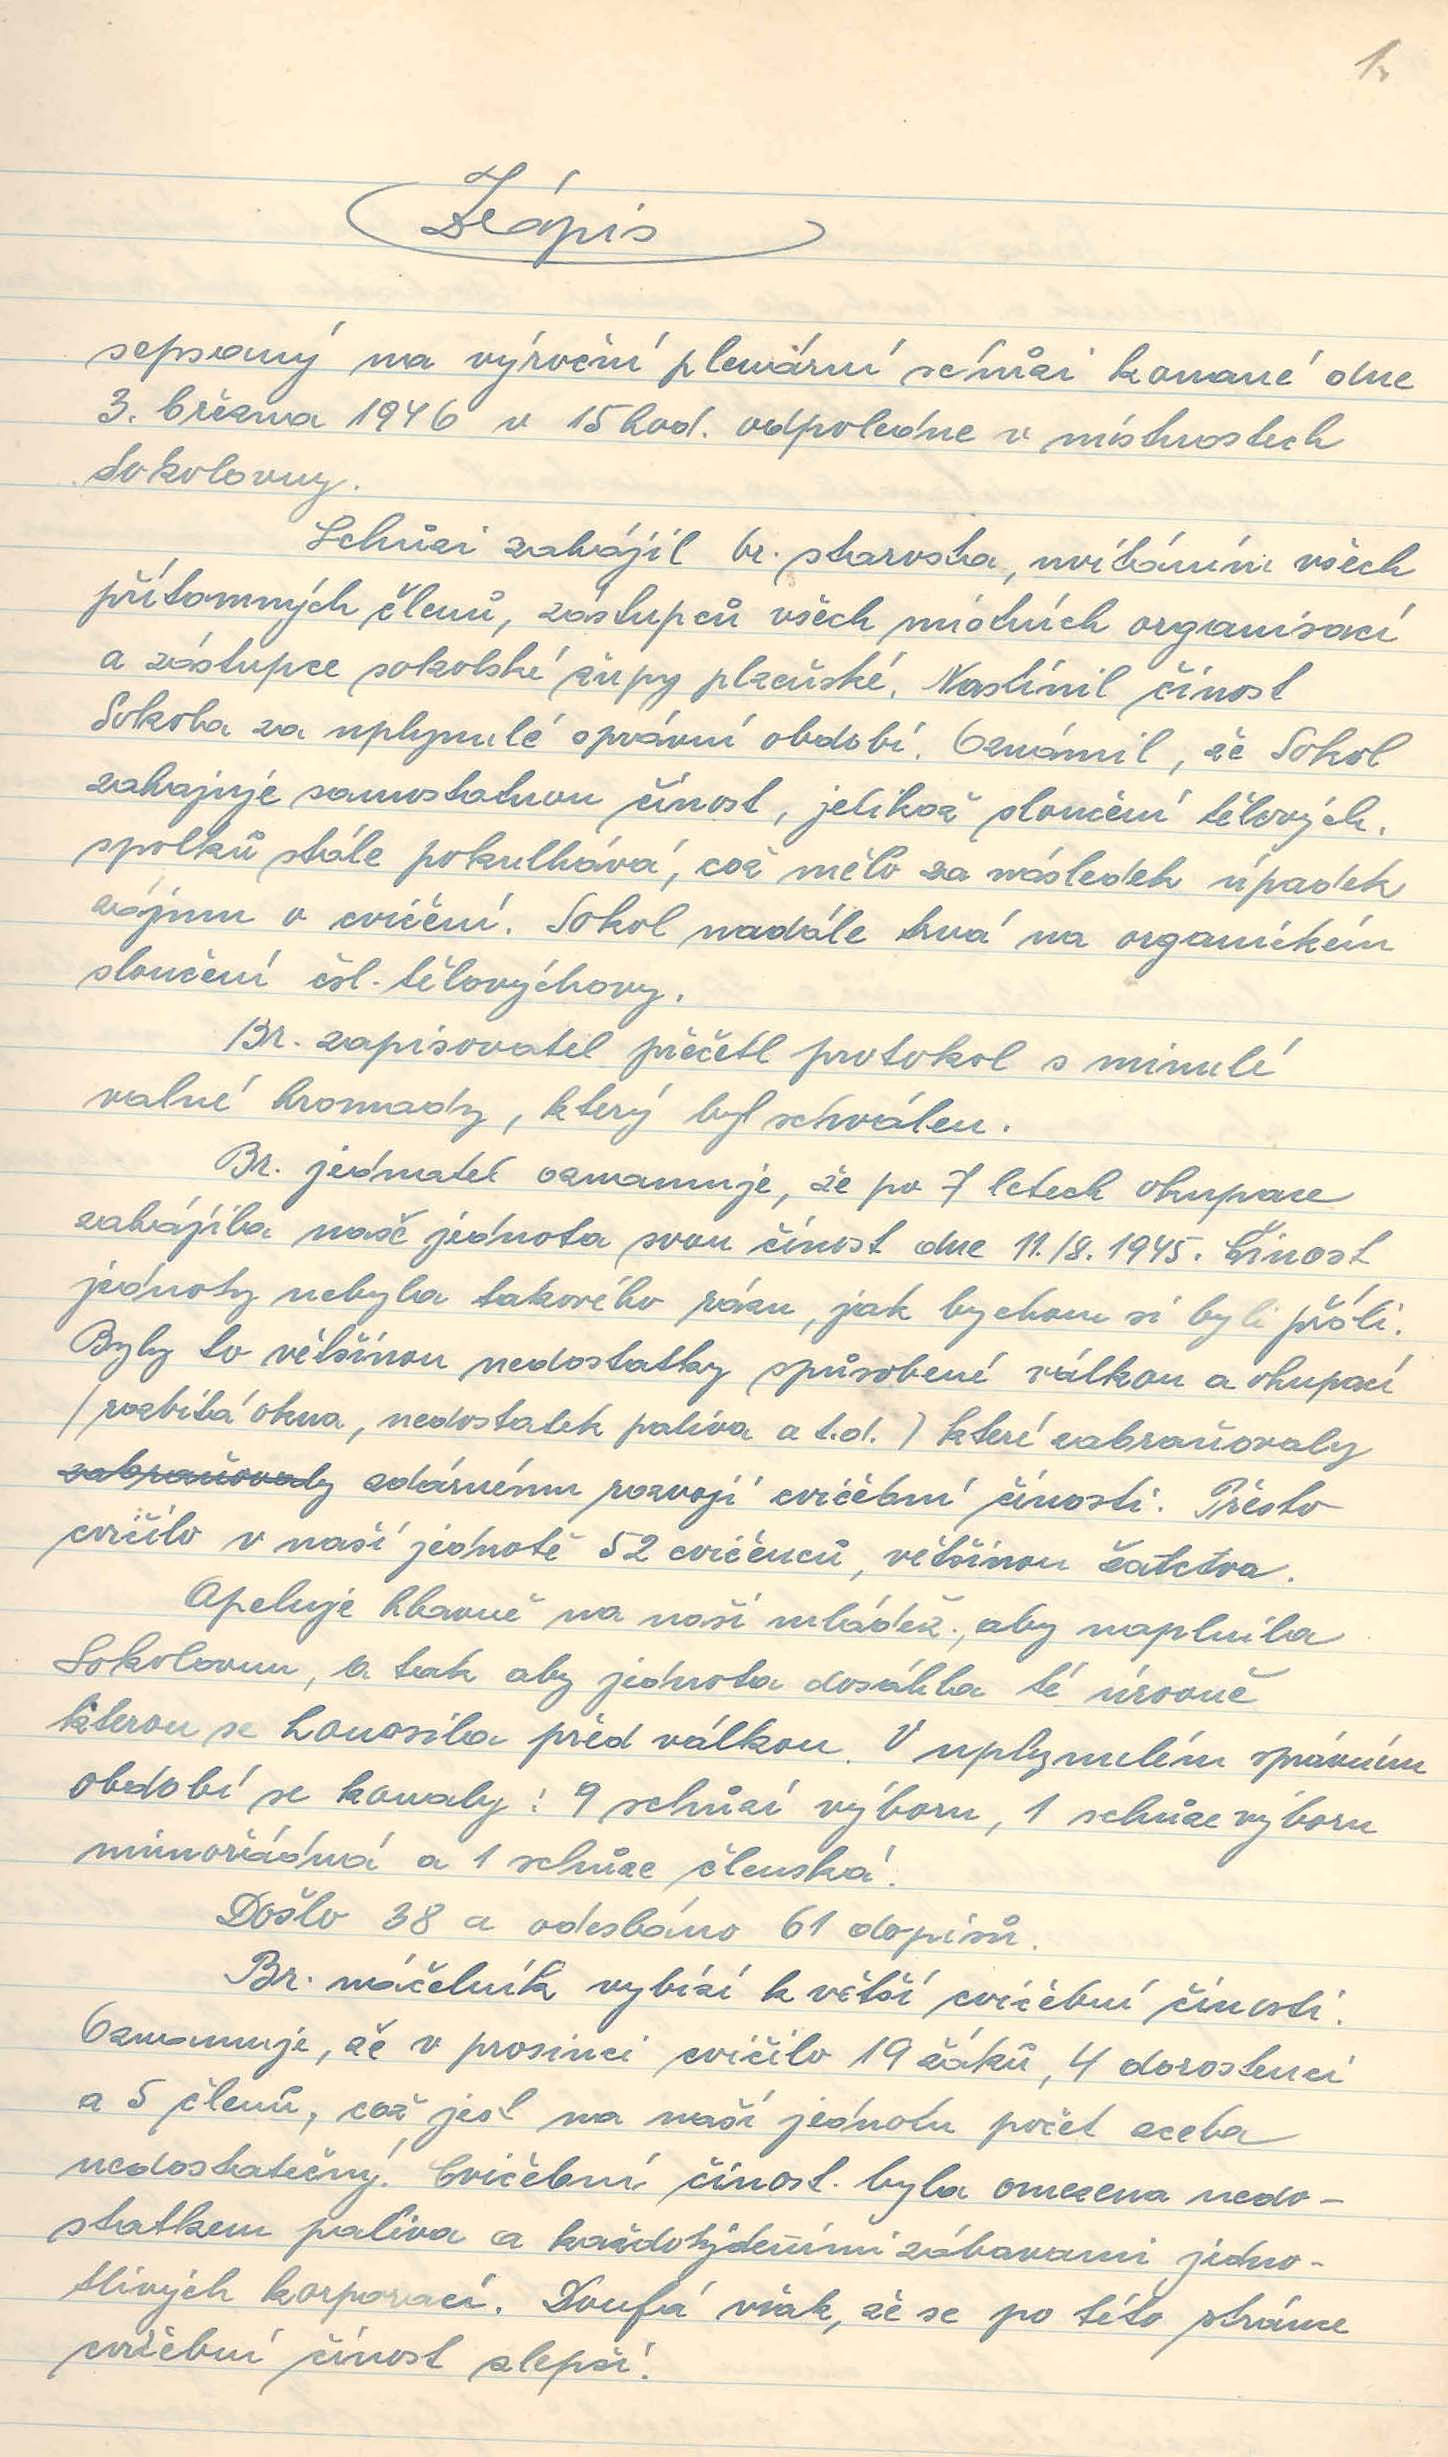 1.
Zápis
sepsaný na výroční plenární schůzi konané dne
3. března 1946 v 15 hod. odpoledne v místnostech
Sokolovny.
Schůzi zahájil br. starosta, uvítáním všech
přítomných členů, zástupců všech místních organisací
a zástupce sokolské župy plzeňské. Nastínil činost
Sokola za uplynulé správní období. Oznámil, že Sokol
zahajuje samostatnou činost, jelikož sloučení tělových.
spolků stále pokulhává, což mělo za následek úpadek
zájmu o cvičení. Sokol nadále trvá na organickém
sloučení čsl. tělovýchovy.
Br. zapisovatel přečetl protokol s minulé
valné hromady, který byl schválen.
Br. jednatel oznamuje, že po 7 letech okupace
zahájila naše jednota svou činost dne 11./8. 1945. Činost
jednoty nebyla takového rázu, jak bychom si byli přáli.
Byly to většinou nedostatky spůsobené válkou a okupací
(rozbitá okna, nedostatek paliva a t.d.) které zabraňovaly
zabraňovaly zdárnému rozvoji cvičební činosti. Přesto
cvičilo v naší jednotě 52 cvičenců, většinou žactva.
Apeluje hlavně na naši mládež, aby naplnila
Sokolovnu, a tak aby jednota dosáhla té úrovně
kterou se honosila před válkou. V uplynulém správním
období se konaly: 9 schůzí výboru, 1 schůze výboru
mimořádná a 1 schůze členská.
Došlo 38 a odesláno 61 dopisů.
Br. náčelník vybízí k větší cvičební činosti.
Oznamuje, že v prosinci cvičilo 19 žáků, 4 dorostenci
a 5 členů, což jest na naší jednotu počet zcela
nedostatečný. Cvičební činost. byla omezena nedo-
statkem paliva a každotýdeními zábavami jedno-
tlivých korporací. Doufá však, že se po této stránce
cvičební činost zlepší.